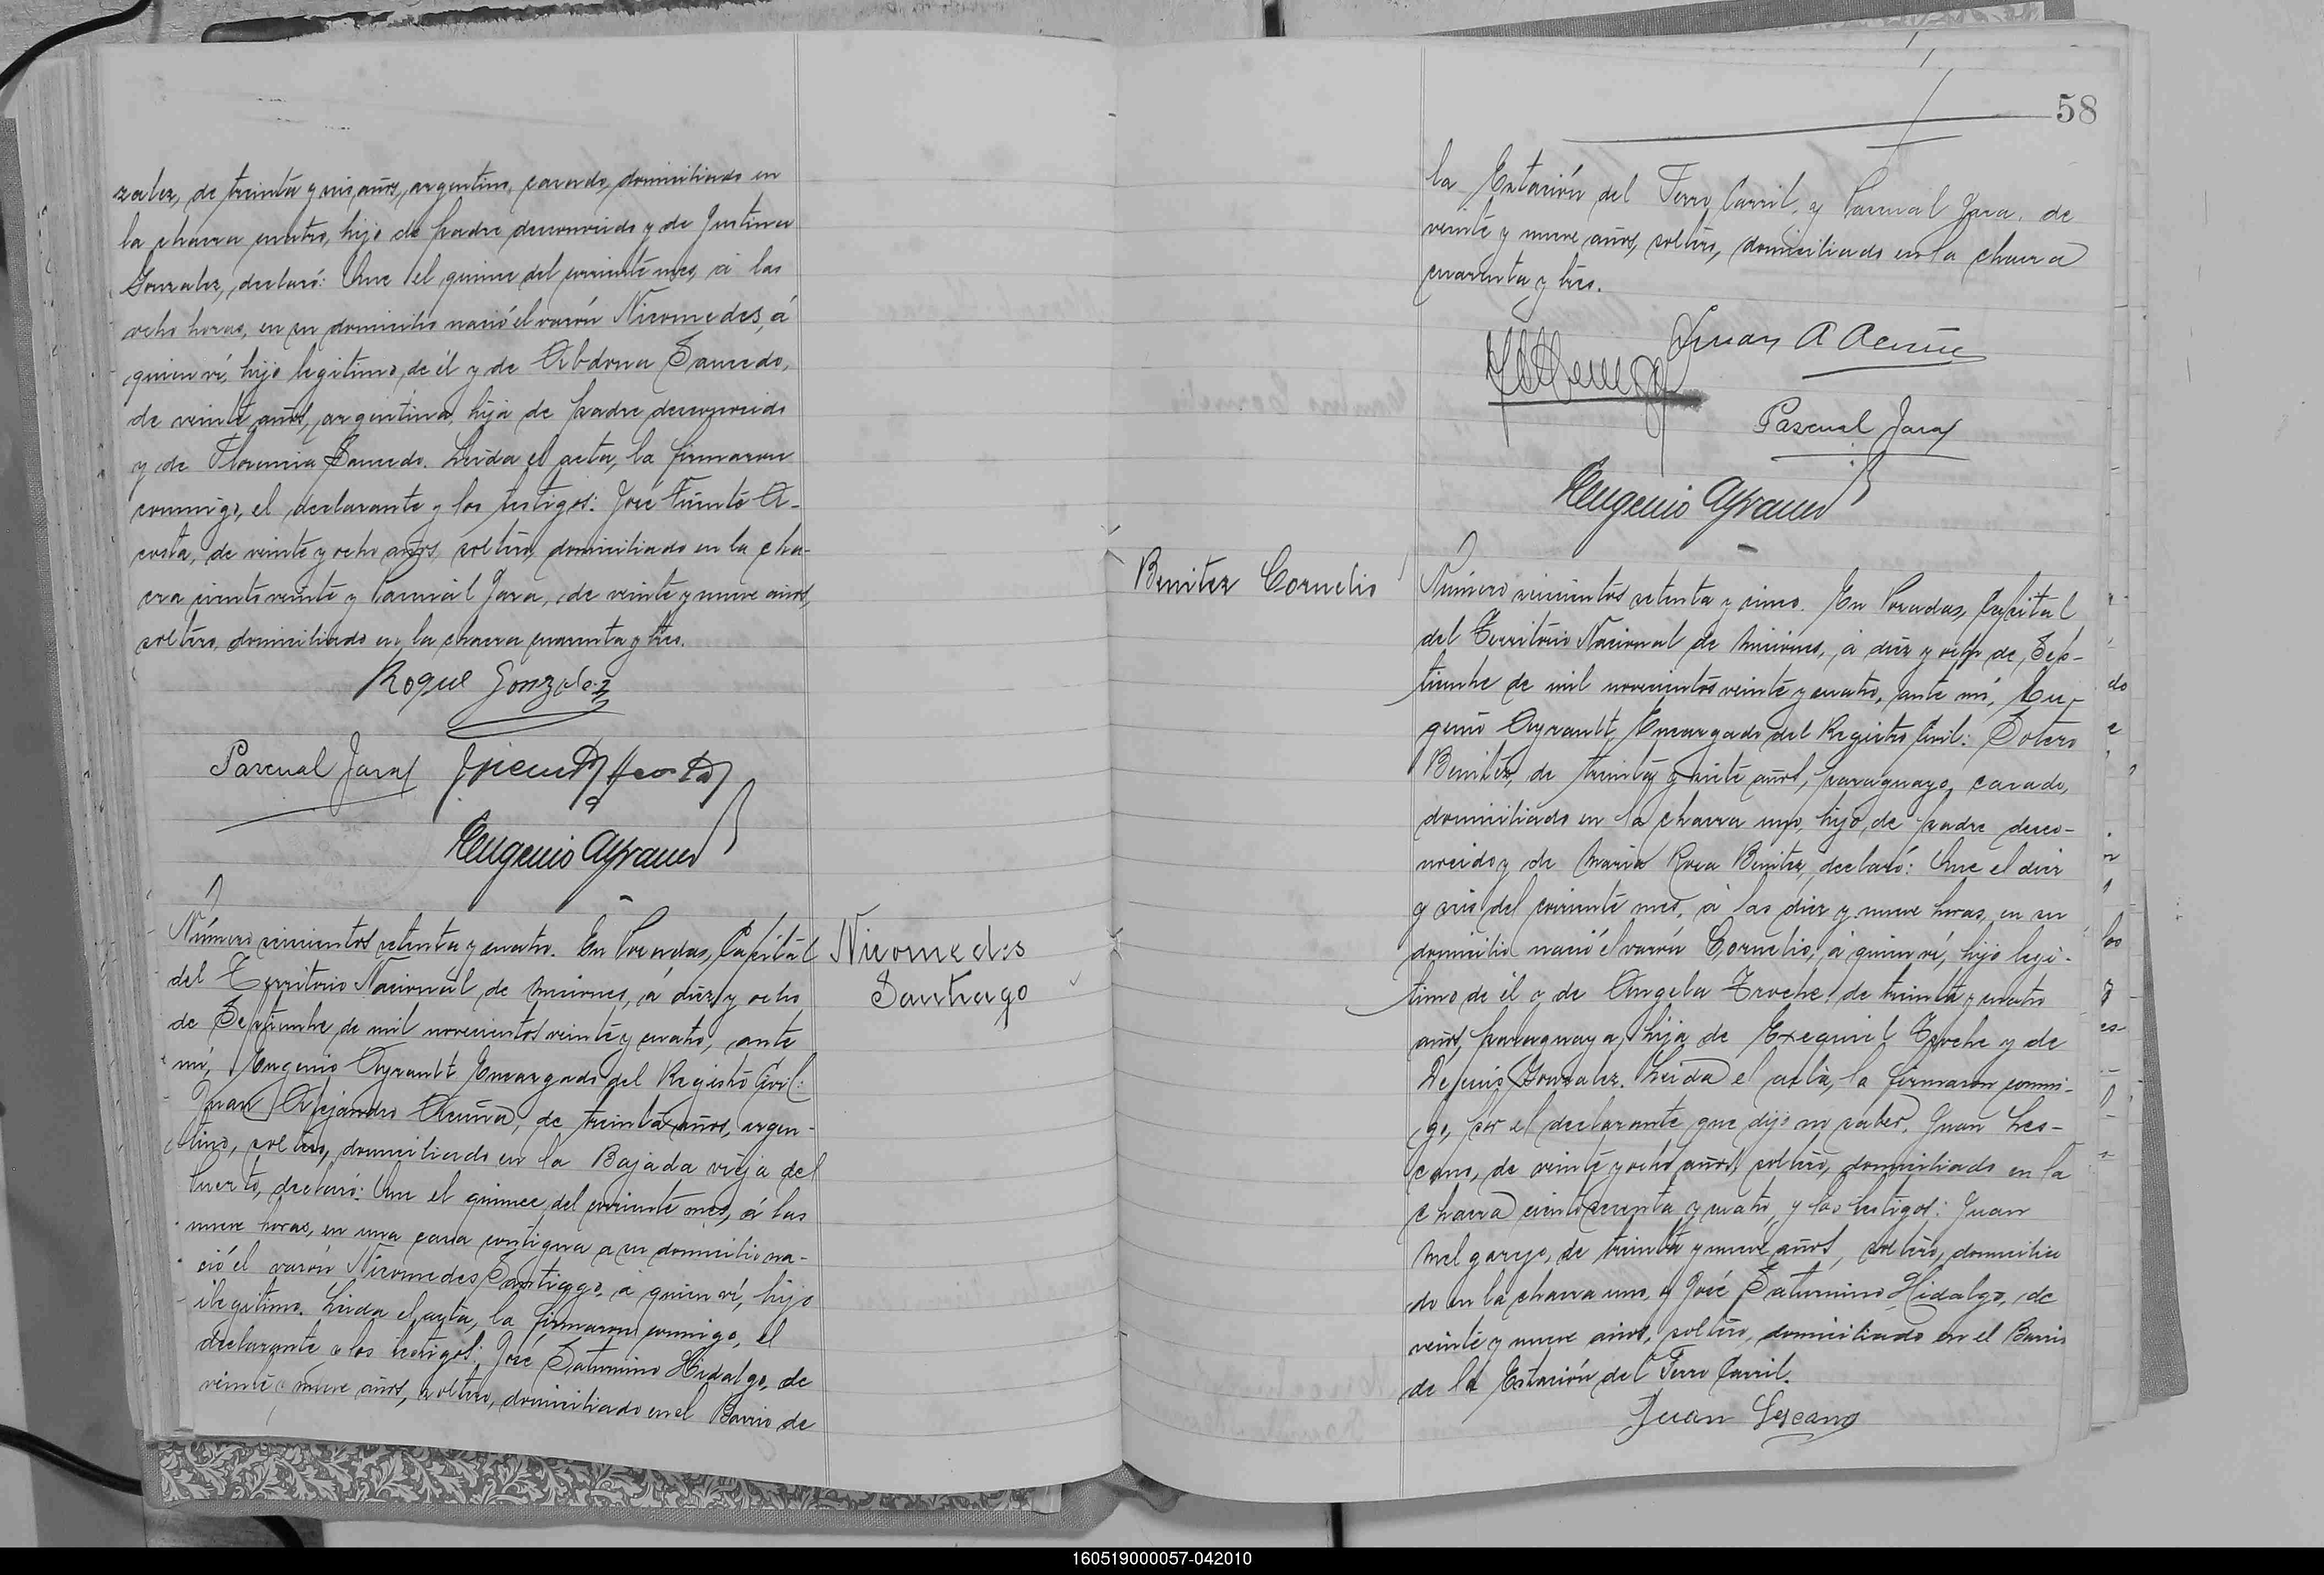 zalez, de treinta y seis años, argentino, casado, domiciliado en
la chacra cuatro, hijo de padre desconocido y de Justina
Gonzalez, declaró: Que el quince del corriente mes, á las
ocho horas, en su domicilio nació el varón Nicomedes, á
quien ví, hijo legítimo, de él y de Abdona Saucedo,
de veinte años, argentina, hija de padre desconocido
y de Florencia Saucedo. Leida el acta, la firmaron
conmigo, el declarante y los testigos: José Vicente A-
costa, de veinte y ocho años, soltero, domiciliado en la cha-
cra ciento veinte y Pascual Jara, de veinte y nueve años,
soltero, domiciliado en la chacra cuarenta y tres.
Roque Gonzalez
Pascual Jara Acosta
Eugenio Ayrault
Número seiscientos setenta y cuatro. En Posadas, Capital
del Territorio Nacional de Misiones, á diez y ocho
de Septiembre de mil novecientos veinte y cuatro, ante
mí, Eugenio Ayrault Encargado del Registro Civil:
Juan Alejandro Acuña, de treinta años, argen-
tino, soltero, domiciliado en la Bajada vieja del
Puerto, declaró: Que el quince del corriente mes, á las
nueve horas, en una casa contigua a su domicilio na-
ció el varón Nicomedes Santiago, á quien ví, hijo
ilegítimo. Leida el acta, la firmaron conmigo, el
declarante y los testigos: José Saturnino Hidalgo, de
veinte y nueve años, soltero, domiciliado en el Barrio de
Nicomedes
Santiago
58
la Estación del Ferro Carril, y Pascual Jara, de
veinte y nueve años, soltero, domiciliado en la chacra
cuarenta y tres.
Juan A Acuña
Pascual Jara
Eugenio Ayrault
Benitez Cornelio
Número seiscientos setenta y cinco. En Posadas, Capital
del Territorio Nacional de Misiones, á diez y ocho de Sep-
tiembre de mil novecientos veinte y cuatro, ante mí, Eu-
genio Ayrault, Encargado del Registro Civil: Sotero
Benitez, de treinta y siete años, paraguayo, casado,
domiciliado en la chacra uno, hijo de padre desco-
nocido y de Maria Rosa Benitez, declaró: Que el diez
y seis del corriente mes, á las diez y nueve horas, en su
domicilio nació el varón Cornelio, á quien ví, hijo legi-
timo de él y de Angela Troche, de treinta y cuatro
años, paraguaya, hija de Exequiel Troche y de
Gonzalez. Leida el acta, la firmaron conmi-
go, por el declarante que dijo no saber, Juan Les-
cano, de veinte y ocho años, soltero, domiciliado en la
chacra ciento y cuatro, y los testigos: Juan
Melgarejo, de treinta y nueve años, soltero, domicilia
do en la chacra uno, y José Saturnino Hidalgo, de
veinte y nueve años, soltero, domiciliado en el Barrio
de la Estación del Ferro Carril.
Juan Lescano
160519000057-042010